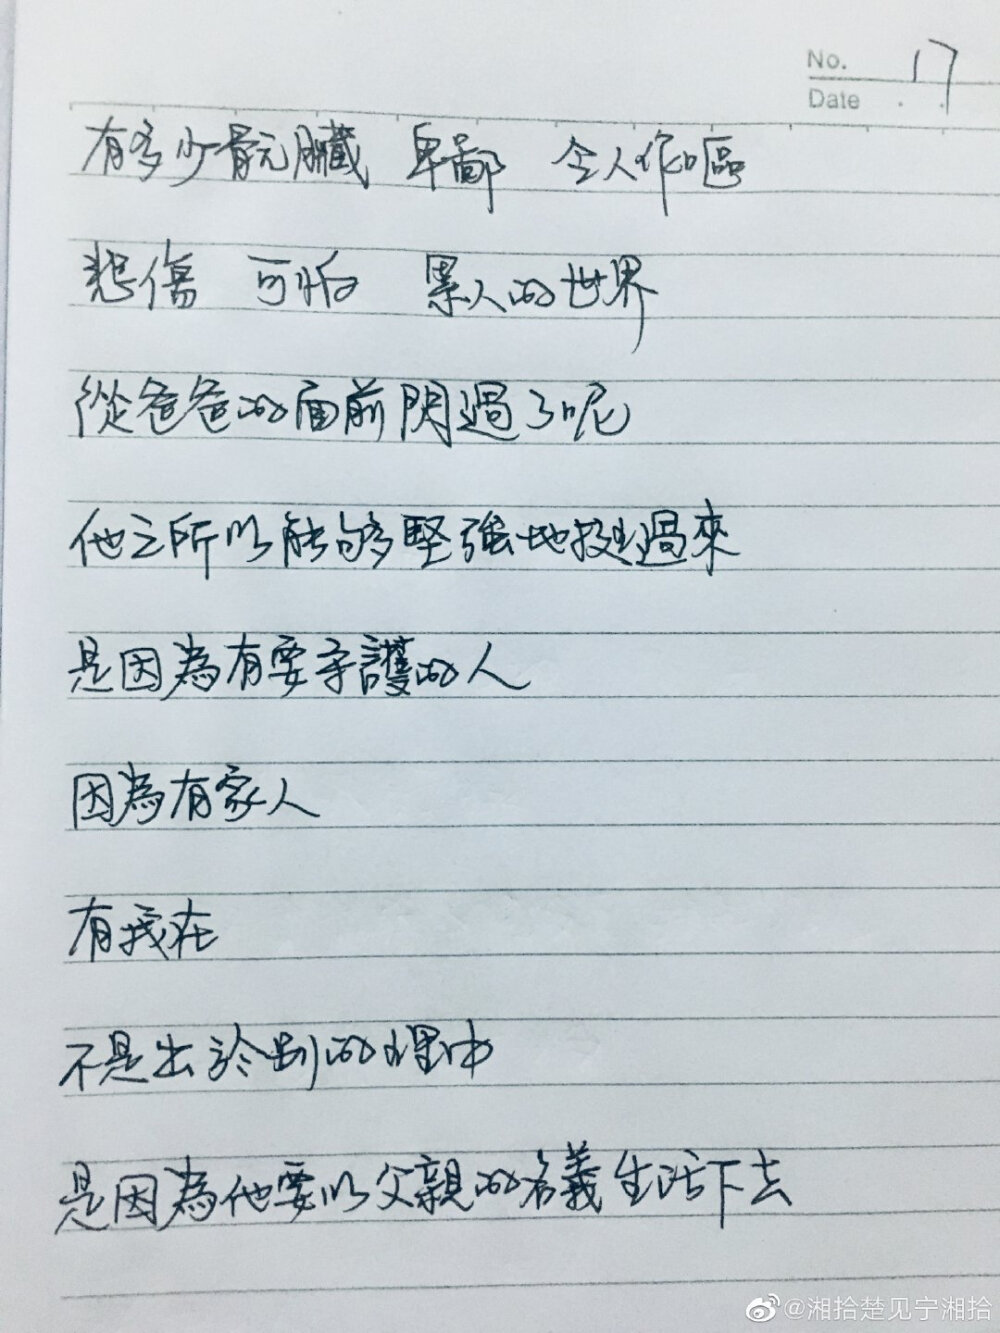 No. 17
Date
有多少骯臟 卑鄙 令人作嘔
悲傷 可怕 累人的世界
從爸爸的面前閃過了呢
他之所以能够堅強地挺過來
是因為有要守護的人
因為有家人
有我在
不是出於別的理由
是因為他要以父親的名義生活下去
@湘拾楚见宁湘拾